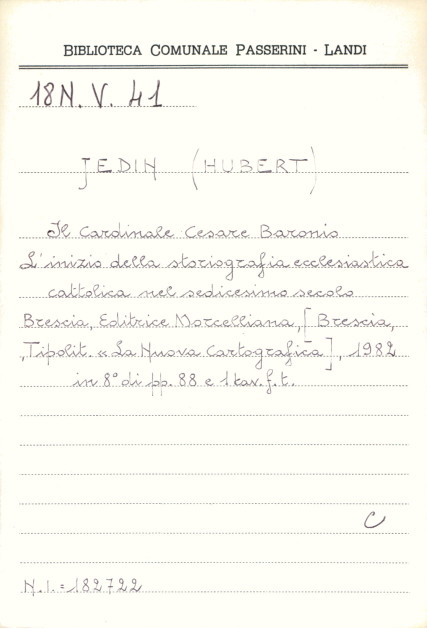 BIBLIOTECA COMUNALE PASSERINI - LANDI
18N. V. 41
JEDIN (HUBERT)
Il Cardinale Cesare Baronio
L'inizio della storiografia ecclesiastica
cattolica nel sedicesimo secolo
Brescia, Editrice Morcelliana, [Brescia,
Tipolit. «La Nuova Cartografica], 1982
in 8° di pp. 88 e 1 tav. f. t.
C
N. I. = 182722